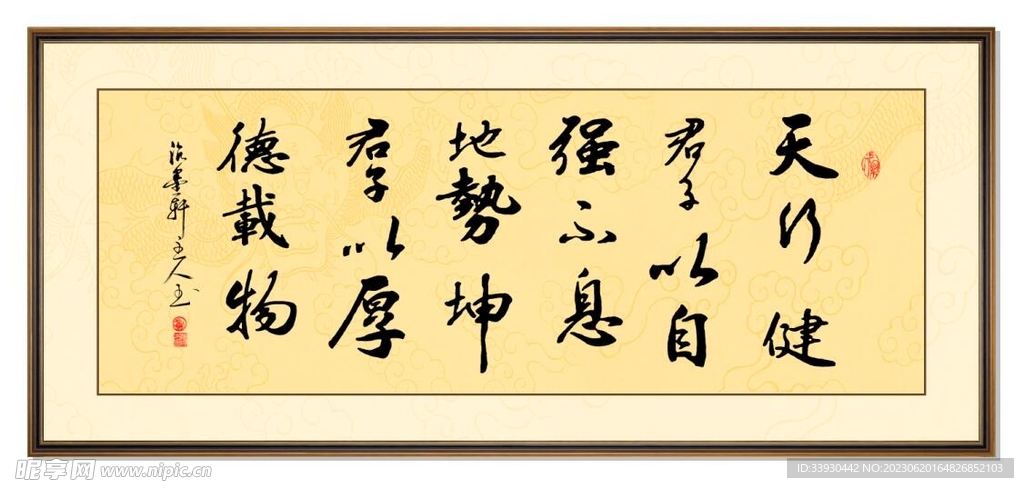 天行健
君子以自
强不息
地勢坤
君子以厚
德載物
墨軒主人
昵享网 www.nipic.cn
ID:33930442 NO:20230620164826852103